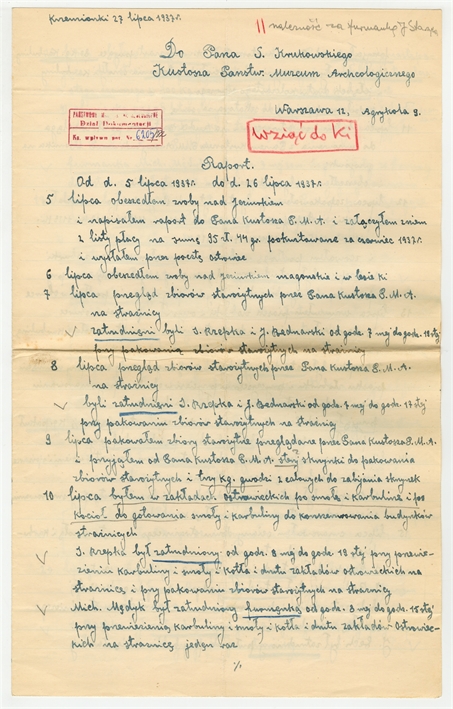 Krzemionki 27 lipca 1937r.
|| należność za furmankę J
Do Pana S. Krukowskiego
Kustosza Państw. Muzeum Archeologicznego
Warszawa 12, Agrykola 9.
Dział Dokumentacji
Wziąć do Ki
Raport.
Od d. 5 lipca 1937r. do d. 26 lipca 1937r.
5 lipca obeszedłem zroby nad
i napisałem raport do Pana Kustosza P.M.A. i załączyłem z niem
2 listy płacy na sumę 95 zł. 44 gr. pokwitowane za czerwiec 1937r.
i wysłałem przez pocztę ostrowiec
6 lipca obeszedłem zroby nad i w lesie ki
7 lipca przegląd zbiorów starożytnych przez Pana Kustosza P.M.A.
na strażnicy
zatrudnieni byli S. Rzepka i J. Bednarski od godz. 7 mej do godz. 18 stej
przy pakowaniu zbiorów starożytnych na strażnicy
8 lipca przegląd zbiorów starożytnych przez Pana Kustosza P.M.A.
na strażnicy
byli zatrudnieni S. Rzepka i J. Bednarski od godz. 7 mej do godz. 17 stej
przy pakowaniu zbiorów starożytnych na strażnicy
9 lipca pakowałem zbiory starożytne przeglądane przez Pana Kustosza P.M.A.
i przyjąłem od Pana Kustosza P.M.A. skrzynki do pakowania
zbiorów starożytnych i trzy kg. gwoździ 2 calowych do zabijania skrzynek
10 lipca byłem w zakładach ostrowieckich po smołę i karbulinę i po
kocioł do gotowania smoły i karbuliny do konserwowania budynków
strażniczych
S. Rzepka był zatrudniony od godz. 8 mej do godz. 18 stej przy przeniesieniu karbuliny i smoły i kotła i drutu zakładów ostrowieckich na
strażnicę i przy pakowaniu zbiorów starożytnych na strażnicy
Mich. Mądyk był zatrudniony furmanką od godz. 8 mej do godz. 15 stej
przy przeniesieniu karbuliny i smoły i kotła i drutu zakładów Ostrowieckich na strażnicę jeden raz